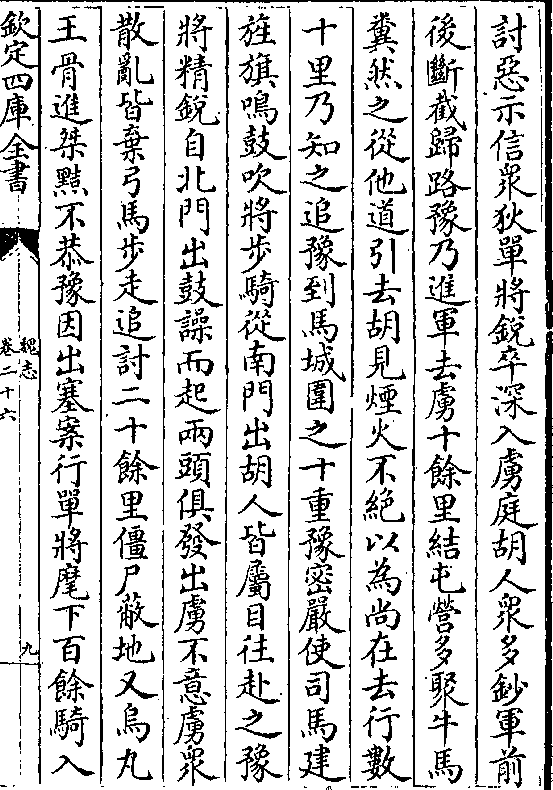 討惡示信衆狄單將銳卒深入虜庭胡人衆多鈔軍前
後斷截歸路豫乃進軍去虜十餘里結屯營多聚牛馬
糞然之從他道引去胡見煙火不絶以為尚在去行數
十里乃知之追豫到馬城圍之十重豫密嚴使司馬建
旌旗鳴鼓吹將步騎從南門出胡人皆屬目往赴之豫
將精銳自北門出鼓譟而起兩頭俱發出虜不意虜衆
散亂皆棄弓馬步走追討二十餘里僵尸蔽地又烏丸
王骨進桀黠不恭豫因出塞案行單將麾下百餘騎入
欽定四庫全書
魏志
卷二十六
九